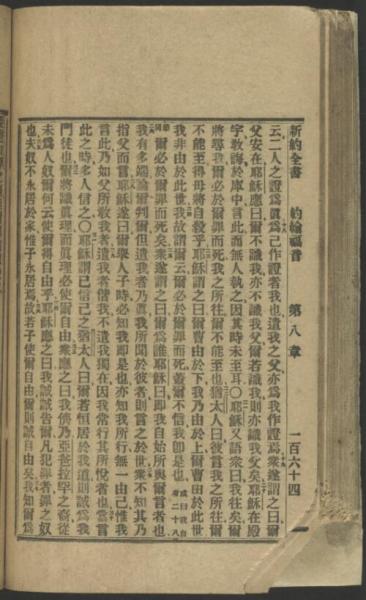 新約全書 約翰福音 第八章 一百六十四
云二人之證爲眞爲己作證者我也遣我之父亦爲我作證焉衆遂謂之曰爾
父安在耶穌應曰爾不識我亦不識我父爾若識我則亦識我父矣耶穌在殿
宇敎誨於庫中言此而無人執之因其時未至耳○耶穌又語衆曰我往矣爾
將尋我爾必於爾罪而死我之所往爾不能至也猶太人曰彼言我之所往爾
不能至得毋將自殺乎耶穌謂之曰爾曹由於下我乃由於上爾曹由於此世
我非由於此世我故謂爾云爾必於爾罪而死蓋爾不信我卽是也
爾必於爾罪而死矣衆遂謂之曰爾爲誰耶穌曰卽我自始所與爾言者也
我有多端論爾判爾但遣我者乃眞我所聞於彼者則言之於世衆不知其乃
指父而言耶穌遂曰爾舉人子時必知我卽是也亦知我所行無一由己惟我
言此乃如父所敎我者遣我者偕我不遺我獨在因我常行其所悅者也當言
此之時多人信之○耶穌謂已信己之猶太人曰爾若恒居於我道則誠爲我
門徒也爾將識眞理而眞理必使爾自由衆應之曰我儕乃亞伯拉罕之裔從
未爲人奴爾何云使爾得自由乎耶穌應之曰我誠誠告爾凡犯罪者罪之奴
也夫奴不永居於家惟子永居焉故若子使爾自由爾則誠自由矣我知爾爲